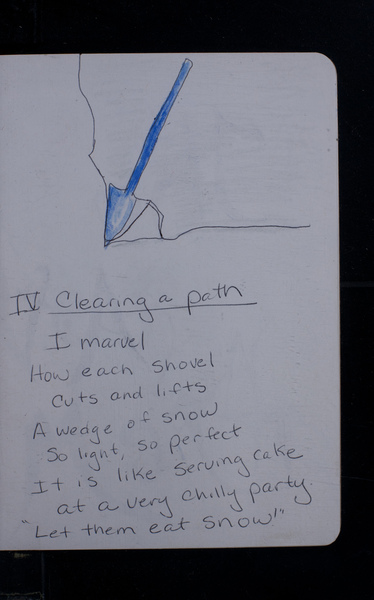 IV Clearing a path
I marvel
How each shovel
cuts and lifts
A wedge of snow
So light, so perfect
It is like serving cake
at a very chilly party.
"Let them eat snow!"